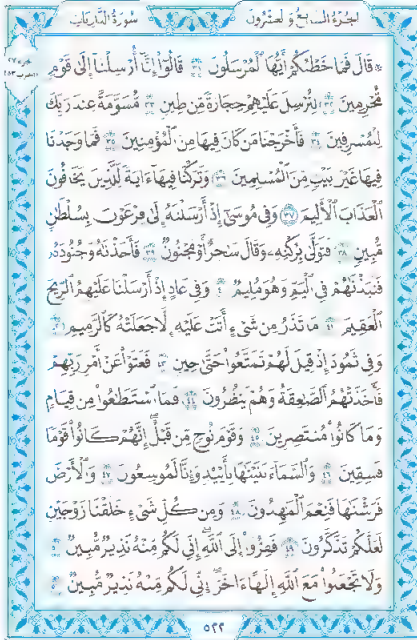 الجزء السابع والعشرون
سورة الذاريات
قَالَ فَمَا خَطْبُكُمْ أَيُّهَا الْمُرْسَلُونَ ٣١ قَالُوٓا۟ إِنَّآ أُرْسِلْنَآ إِلَىٰ قَوْمٍ
مُّجْرِمِينَ ٣٢ لِنُرْسِلَ عَلَيْهِمْ حِجَارَةً مِّن طِينٍ ٣٣ مُّسَوَّمَةً عِندَ رَبِّكَ
لِلْمُسْرِفِينَ ٣٤ فَأَخْرَجْنَا مَن كَانَ فِيهَا مِنَ الْمُؤْمِنِينَ ٣٥ فَمَا وَجَدْنَا
فِيهَا غَيْرَ بَيْتٍ مِّنَ الْمُسْلِمِينَ ٣٦ وَتَرَكْنَا فِيهَآ ءَايَةً لِّلَّذِينَ يَخَافُونَ
الْعَذَابَ الْأَلِيمَ ٣٧ وَفِى مُوسَىٰٓ إِذْ أَرْسَلْنَٰهُ إِلَىٰ فِرْعَوْنَ بِسُلْطَٰنٍ
مُّبِينٍ ٣٨ فَتَوَلَّىٰ بِرُكْنِهِۦ وَقَالَ سَٰحِرٌ أَوْ مَجْنُونٌ ٣٩ فَأَخَذْنَٰهُ وَجُنُودَهُۥ
فَنَبَذْنَٰهُمْ فِى الْيَمِّ وَهُوَ مُلِيمٌ ٤٠ وَفِى عَادٍ إِذْ أَرْسَلْنَا عَلَيْهِمُ الرِّيحَ
الْعَقِيمَ ٤١ مَا تَذَرُ مِن شَىْءٍ أَتَتْ عَلَيْهِ إِلَّا جَعَلَتْهُ كَالرَّمِيمِ ٤٢
وَفِى ثَمُودَ إِذْ قِيلَ لَهُمْ تَمَتَّعُوا۟ حَتَّىٰ حِينٍ ٤٣ فَعَتَوْا۟ عَنْ أَمْرِ رَبِّهِمْ
فَأَخَذَتْهُمُ الصَّٰعِقَةُ وَهُمْ يَنظُرُونَ ٤٤ فَمَا اسْتَطَٰعُوا۟ مِن قِيَامٍ
وَمَا كَانُوا۟ مُنتَصِرِينَ ٤٥ وَقَوْمَ نُوحٍ مِّن قَبْلُ إِنَّهُمْ كَانُوا۟ قَوْمًا
فَٰسِقِينَ ٤٦ وَالسَّمَآءَ بَنَيْنَٰهَا بِأَيْيدٍ وَإِنَّا لَمُوسِعُونَ ٤٧ وَالْأَرْضَ
فَرَشْنَٰهَا فَنِعْمَ الْمَٰهِدُونَ ٤٨ وَمِن كُلِّ شَىْءٍ خَلَقْنَا زَوْجَيْنِ
لَعَلَّكُمْ تَذَكَّرُونَ ٤٩ فَفِرُّوٓا۟ إِلَى اللَّهِ إِنِّى لَكُم مِّنْهُ نَذِيرٌ مُّبِينٌ ٥٠
وَلَا تَجْعَلُوا۟ مَعَ اللَّهِ إِلَٰهًا ءَاخَرَ إِنِّى لَكُم مِّنْهُ نَذِيرٌ مُّبِينٌ ٥١
٥٢٢